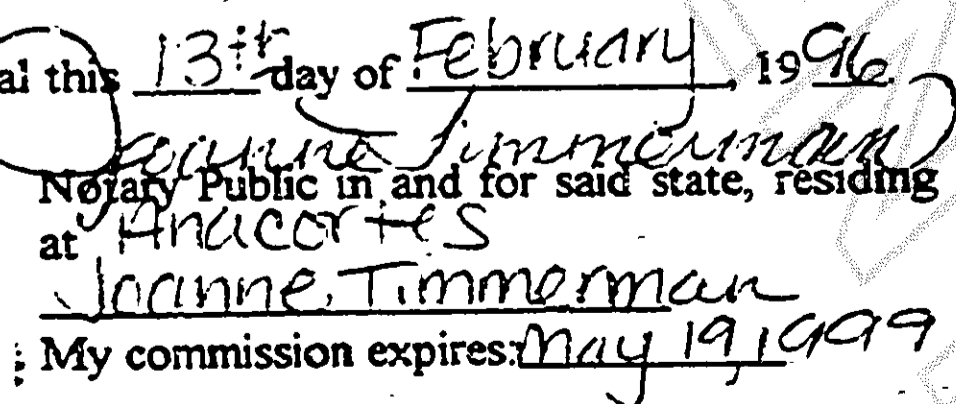 al this 13th day of February, 1996
Joanne Timmerman
Notary Public in and for said state, residing
at Anacortes
Joanne Timmerman
My commission expires: May 19, 1999